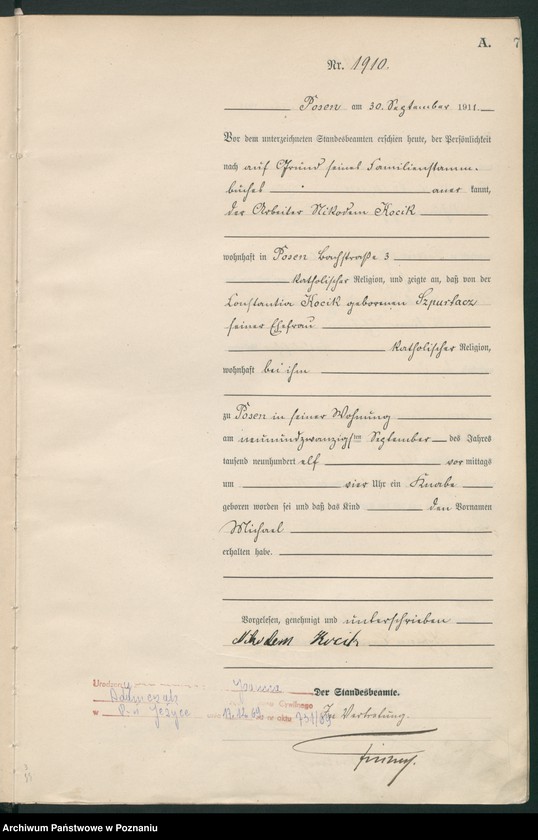 A. 7
Nr. 1910.
Posen am 30. September 1911
Vor dem unterzeichneten Standesbeamten erschien heute, der Persönlichkeit
nach auf Grund seines Familienstamm-
buches aner kannt,
der Arbeiter Nikodem Kocik
wohnhaft in Posen Bachstraße 3
katholischer Religion, und zeigte an, daß von der
Konstantia Kocik geborenen Szpurtacz
seiner Ehefrau
katholischer Religion,
wohnhaft bei ihm
zu Posen in seiner Wohnung
am neunundzwanzigsten September des Jahres
tausend neunhundert elf vor mittags
um vier Uhr ein Knabe
geboren worden sei und daß das Kind den Vornamen
Michael
erhalten habe.
Vorgelesen, genehmigt und unterschrieben
Nikodem Kocik
Der Standesbeamte.
In Vertretung.
w Jeżyce w aktu 731/69
Archiwum Państwowe w Poznaniu